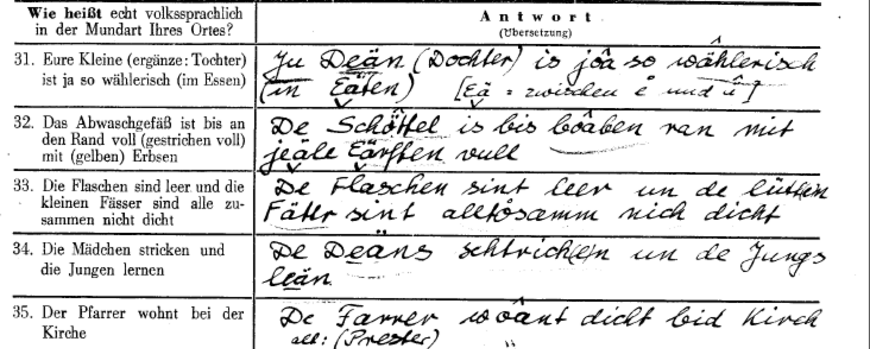 Wie heißt echt volkssprachlich
in der Mundart Ihres Ortes?
Antwort
(Übersetzung)
31. Eure Kleine (ergänze: Tochter)
ist ja so wählerisch (im Essen)
Ju Deän (Dochter) is joâ so wählerisch
(in Eäten) [Eä = zwischen e und ä]
32. Das Abwaschgefäß ist bis an
den Rand voll (gestrichen voll)
mit (gelben) Erbsen
De Schöttel is bis boâben ran mit
jeäle Eärften vull
33. Die Flaschen sind leer und die
kleinen Fässer sind alle zu-
sammen nicht dicht
De Flaschen sint leer un de lütten
Fäter sint alltosamm nich dicht
34. Die Mädchen stricken und
die Jungen lernen
De Deäns schtrick(e)n un de Jungs
leän
35. Der Pfarrer wohnt bei der
Kirche
De Farrer woânt dicht bid Kirch
alt: (Prester) "